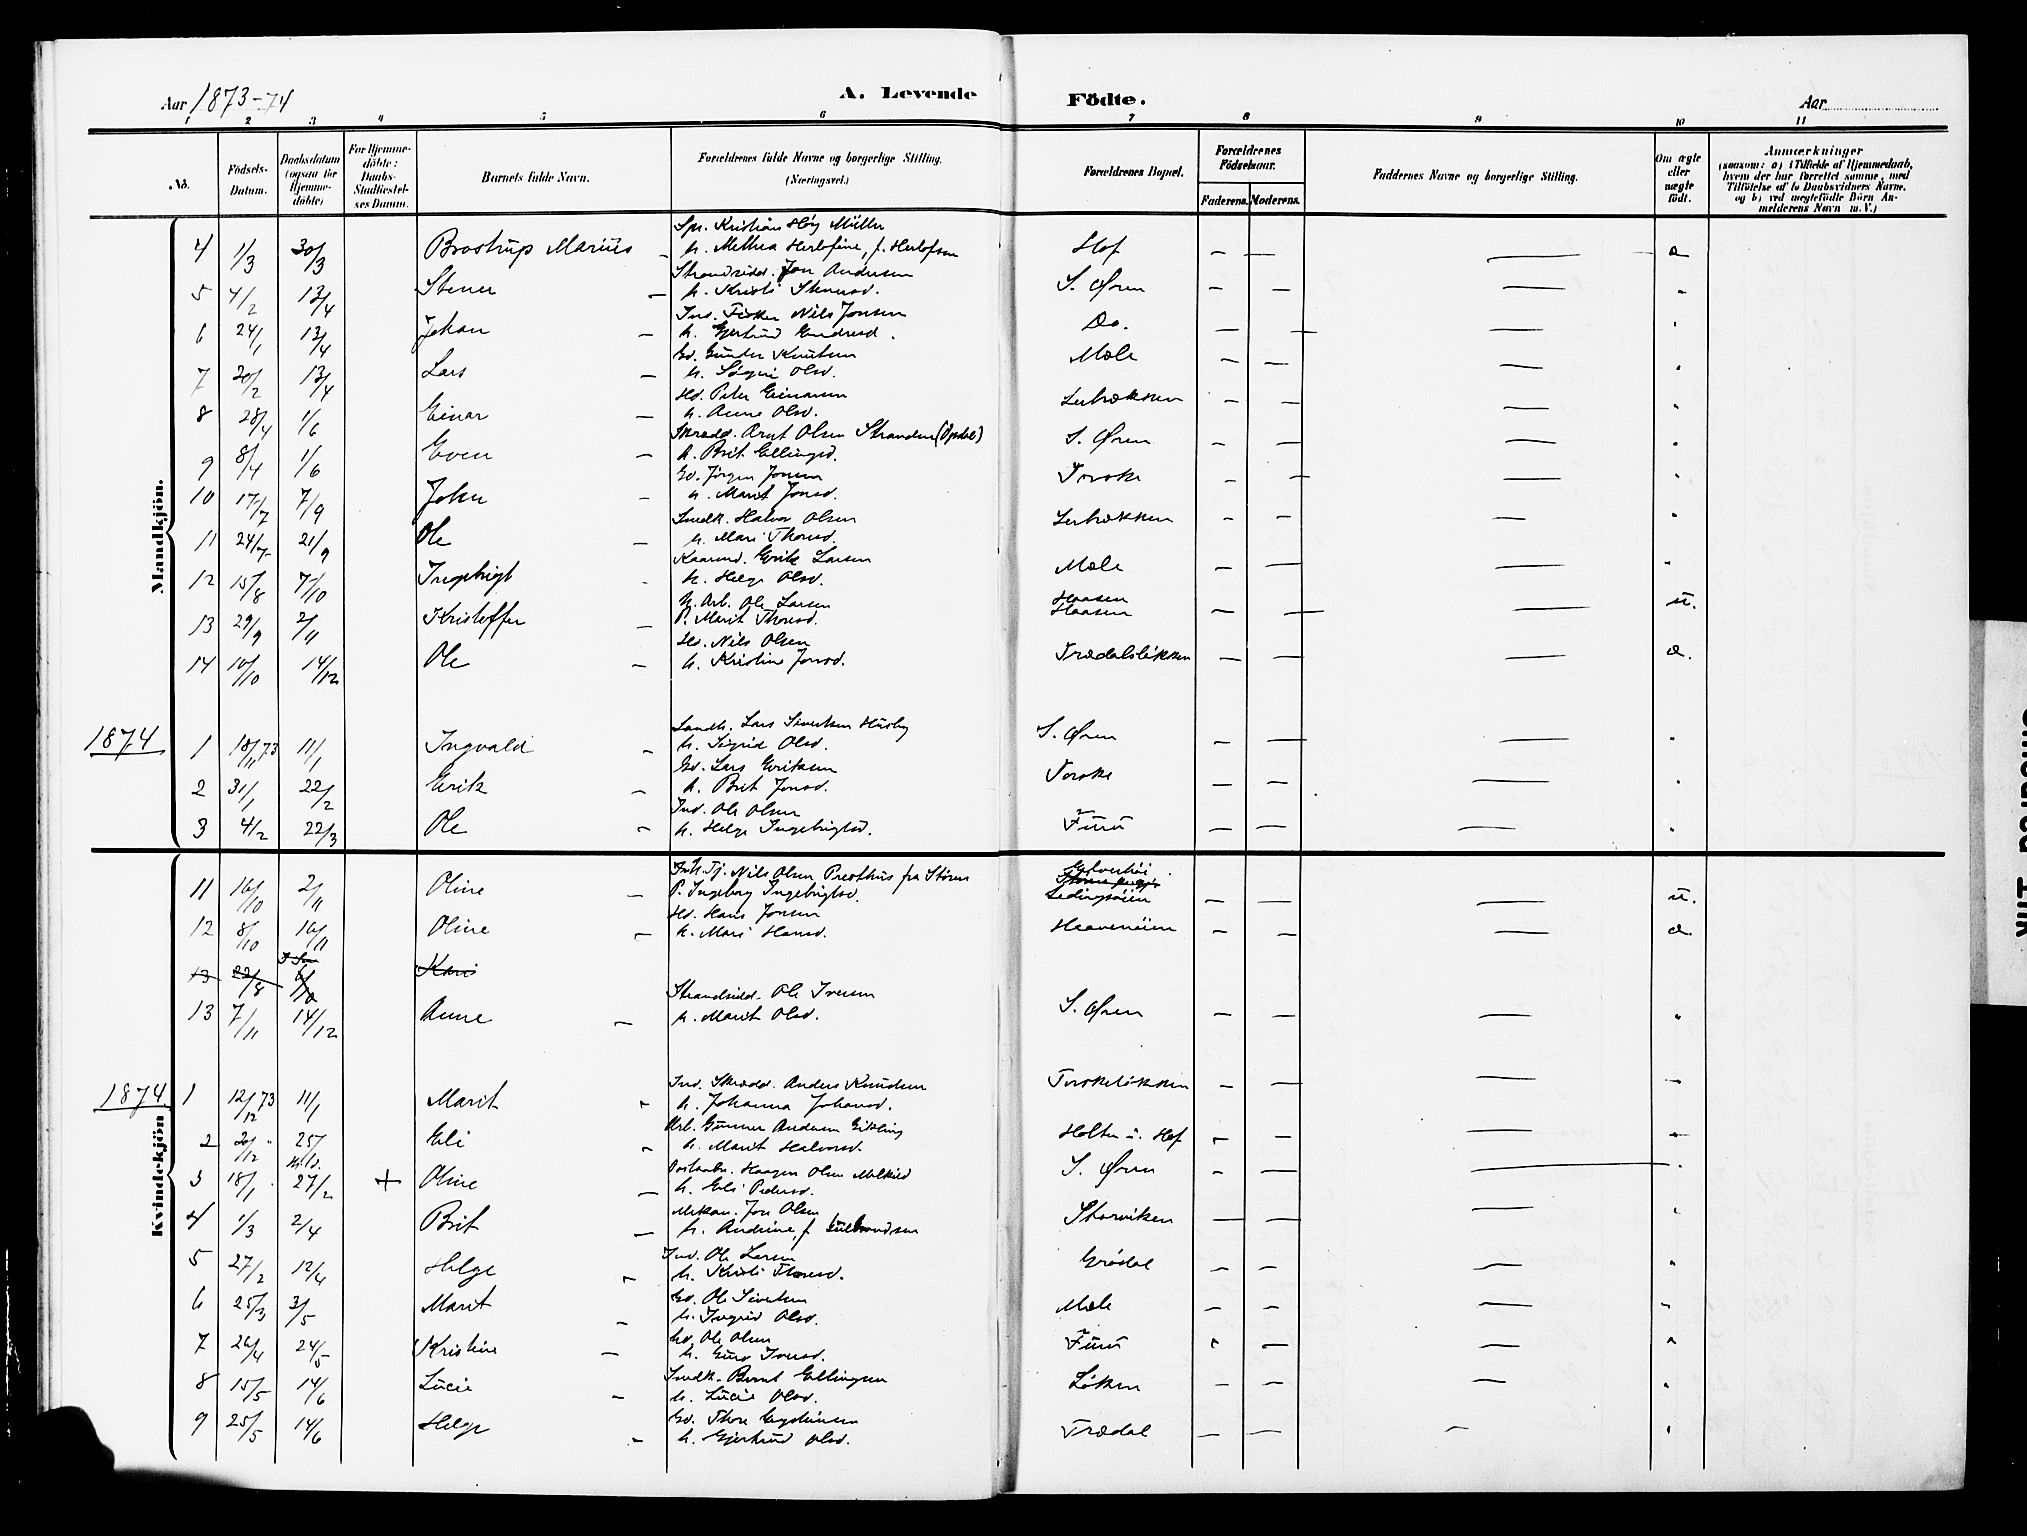 Aar 1873-74 A. Levende Födte. Aar
1 2 3 4 5 6 7 8 9 10 11
No. Födsels-Datum. Daabsdatum (ogsaa for Hjemme-döbte) For Hjemme-döbte: Daabs-Stadfæstel-ses Datum. Barnets fulde Navn. Forældrenes fulde Navne og borgerlige Stilling. (Næringsvei.) Forældrenes Bopæl. Forældrenes Födselsaar. Faderens. Moderens. Faddernes Navne og borgerlige Stilling. Om ægte eller uægte födt. Anmærkninger (saasom: a) i Tilfælde af Hjemmedaab, hvem der har forrettet samme, med Tilföielse af to Daabsvidners Navne, og b) ved uægtefödte Börn An-melderens Navn m. V.)
Mandkjön.
Kristian Höy Müller
4 1/3 30/3 Brostrup Marius - h. Methea Herlofine, f. Herlofsen Hof - - - æ
Strandsidd. Jon Andersen
5 4/2 13/4 Stener - h. Kristi Stenersd. S. Øren - - - "
Ind. Fisker Nils Jonsen
6 24/1 13/4 Johan - h. Gjertrud Endresd. Do. - - - "
Gd. Gunder Knutsen
7 20/2 13/4 Lars - h. Sigri Olsd. Mæle - - - "
Hd. Peter Einarsen
8 28/4 1/6 Einar - h. Anne Olsd. Lerbækken - - - "
Skrædd. Arnt Olsen Stranden (Opdal)
9 8/4 1/6 Even - h. Brit Ellingsd. S. Øren - - - "
Gd. Jörgen Jonsen
10 17/7 7/9 John - h. Marit Jonsd. Torske - - - "
Snedk. Halvor Olsen
11 24/7 21/9 Ole - h. Mari Thorsd. Lerbækken - - - "
Kaarmd. Erik Larsen
12 15/8 7/10 Ingebrigt - h. Helge Olsd. Mæle - - - "
U. Arb. Ole Larsen Haasen
13 29/9 2/11 Kristoffer - P. Marit Thoresd. Haasen - - - u.
Hd. Nils Olsen
14 10/10 14/12 Ole - h. Kristine Jonsd. Trædalsløkken - - - æ.
Landh. Lars Sivertsen Husby
1874 1 18/11 73 11/1 Ingvald - h. Sigrid Olsd. S. Øren - - - "
Gd. Lars Eriksen
2 31/1 22/2 Erik - h. Brit Jonsd. Torske - - - "
Ind. Ole Olsen
3 4/2 22/3 Ole - h. Helge Ingebrigtsd. Furu - - - "
Kvindekjön
Tj. Nils Olsen Presthus fra Støren
11 16/10 2/11 Oline - P. Ingeborg Ingebrigtsd. - - - u.
Hd. Hans Jonsen
12 8/10 16/11 Oline - h. Mari Hansd. Haavenøien - - - æ
13 22/8 Kari
Strandsidd. Ole Iversen
13 7/11 14/12 Anne - h. Marit Olsd. S. Øren - - - "
Ind. Skrædd. Anders Knudsen
1874. 1 12/12 73 11/1 Marit - h. Johanna Johansd. Torskeløkken - - - "
Arb. Gunnar Andersen Gikling
2 20/12 " 25/1 Eli - h. Marit Halvorsd. Holten u. Hof - - - "
Postaabn. Haagen Olsen Melkild
3 18/1 27/2 + Oline - h. Eli Pedersd. S. Øren - - - "
Mekan. Jon Olsen
4 1/3 2/4 Brit - h. Andrine, f. Gulbrandsen Storviken - - - "
Ind. Ole Larsen
5 27/2 12/4 Helge - h. Kristi Thoresd. Grødal - - - "
Gd. Ole Sivertsen
6 25/3 3/5 Marit - h. Ingrid Olsd. Mæle - - - "
Gd. Ole Olsen
7 26/4 24/5 Kristine - h. Guro Iversd. Furu - - - "
Snedk. Bernt Ellingsen
8 15/5 14/6 Lucie - h. Lucie Olsd. Løken - - - "
Gd. Thore Eysteinsen
9 25/5 14/6 Helge - h. Gjertrud Olsd. Trædal - - - "